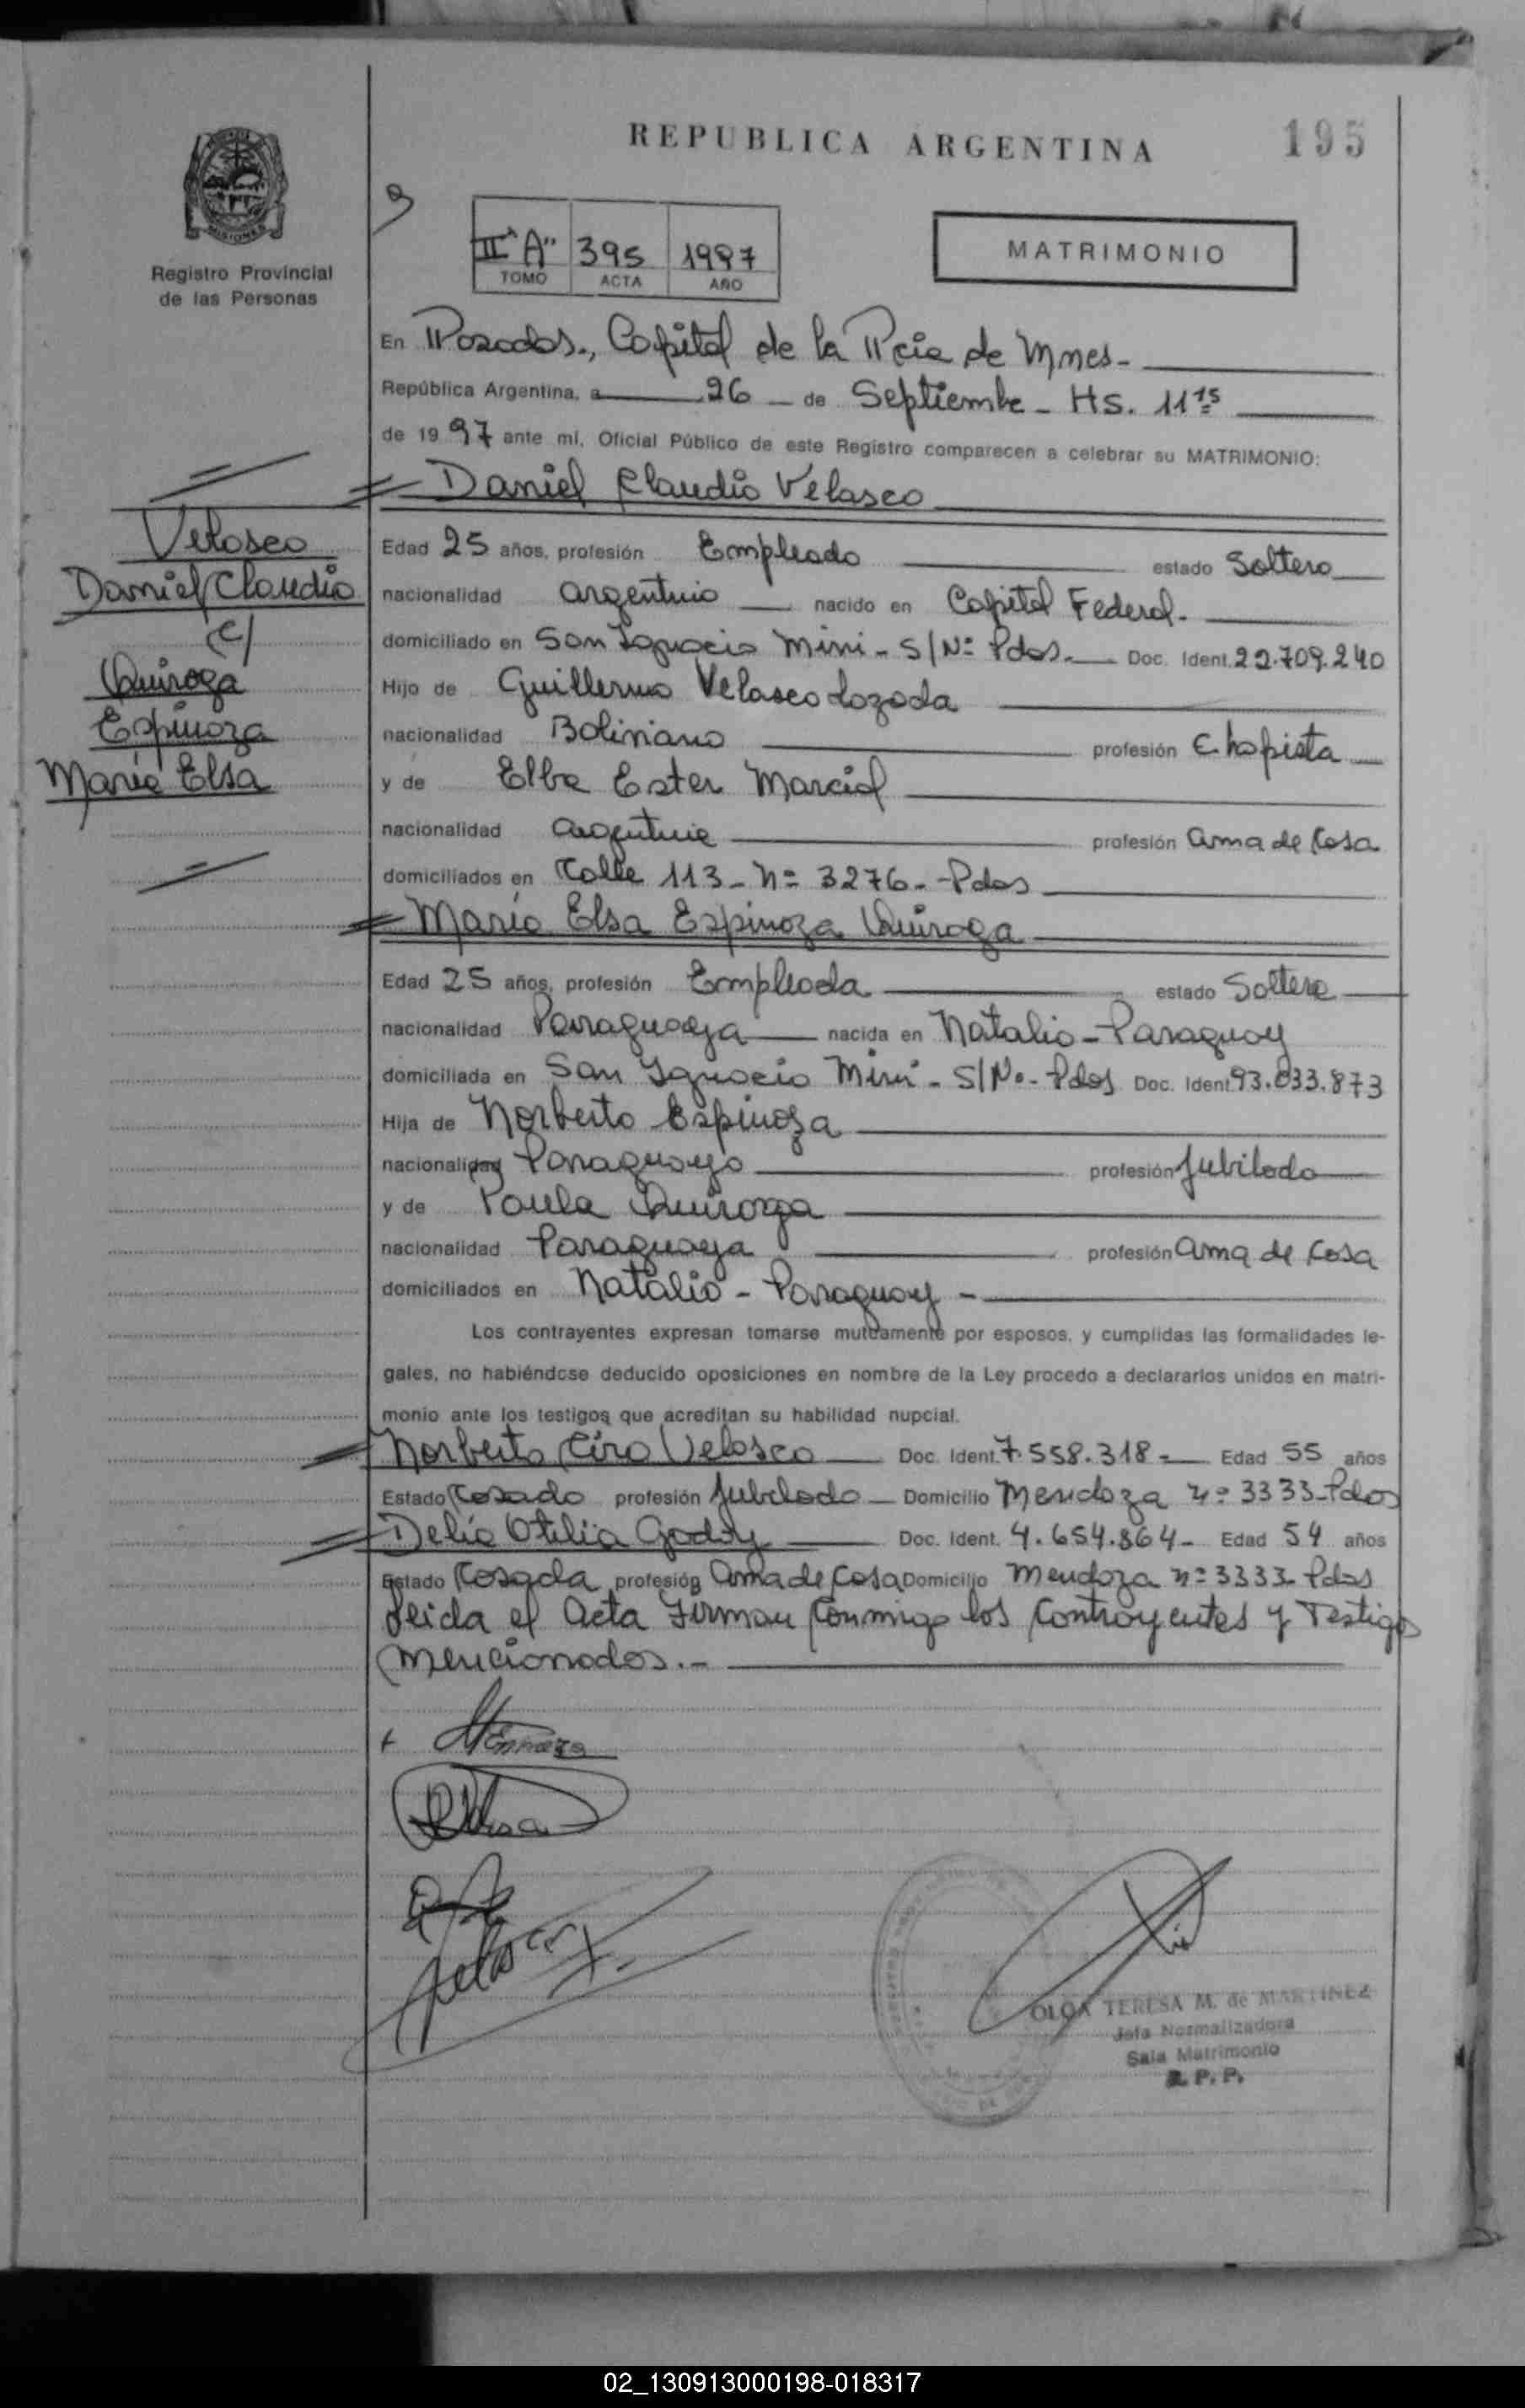 REPUBLICA ARGENTINA
195
MISIONES
Registro Provincial
de las Personas
9
II "A" 395 1997
TOMO ACTA AÑO
MATRIMONIO
En Posadas., Capital de la Pcia de Mnes-
República Argentina, a 26 - de Septiembre - Hs. 11 15
de 19 97 ante mi, Oficial Público de este Registro comparecen a celebrar su MATRIMONIO:
Daniel Claudio Velasco
Velasco
Daniel Claudio
(c/
Quiroga
Espinoza
María Elsa
Edad 25 años, profesión Empleado estado Soltero
nacionalidad argentino nacido en Capital Federal.
domiciliado en San Ignacio Mini - S/Nº Pdas. Doc. Ident. 22.709.240
Hijo de Guillermo Velasco Lozada
nacionalidad Boliviano profesión Chapista
y de Elba Ester Marcial
nacionalidad argentina profesión ama de Casa
domiciliados en Calle 113 - Nº 3276 - Pdas
María Elsa Espinoza Quiroga
Edad 25 años, profesión Empleada estado Soltera
nacionalidad Paraguaya nacida en Natalio - Paraguay
domiciliada en San Ignacio Mini - S/Nº - Pdas Doc. Ident. 93.033.873
Hija de Norberto Espinoza
nacionalidad Paraguayo profesión Jubilado
y de Paula Quirorga
nacionalidad Paraguaya profesión ama de Casa
domiciliados en Natalio - Paraguay -
Los contrayentes expresan tomarse mutuamente por esposos, y cumplidas las formalidades le-
gales, no habiéndose deducido oposiciones en nombre de la Ley procedo a declararlos unidos en matri-
monio ante los testigos que acreditan su habilidad nupcial.
Norberto Ciro Velasco Doc. Ident. 7.558.318 - Edad 55 años
Estado Casado profesión Jubilado - Domicilio Mendoza nº 3333 - Pdas
Delia Otilia Godoy Doc. Ident. 4.654.864 - Edad 54 años
Estado Casada profesión ama de Casa Domicilio Mendoza nº 3333 Pdas
Leida el Acta Firman Conmigo los Contrayentes y Testigos
Mencionados.-
OLGA TERESA M. de MARTINEZ
Jefa Normalizadora
Sala Matrimonio
R. P. P.
02_130913000198-018317